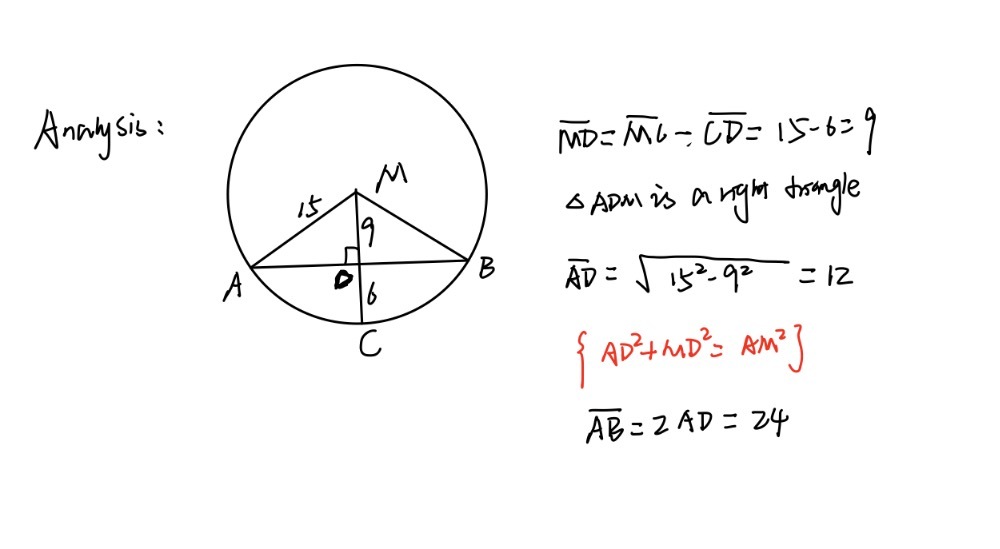 Analysis:
M
15
9
A
D
B
6
C
MD = MC - CD = 15-6=9
△ ADM is a right triangle
AD = √15²-9² = 12
{ AD²+MD²= AM² }
AB = 2 AD = 24